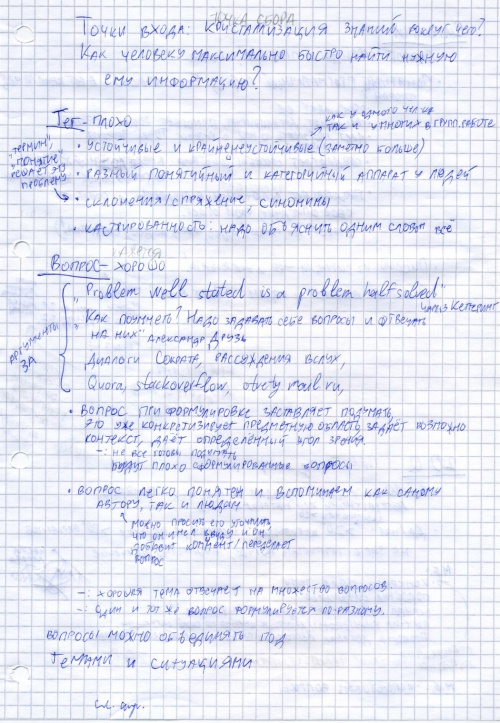 ТОЧКА СБОРА
ТОЧКИ ВХОДА: КРИСТАЛИЗАЦИЯ ЗНАНИЙ ВОКРУГ ЧЕГО?
КАК ЧЕЛОВЕКУ МАКСИМАЛЬНО БЫСТРО НАЙТИ НУЖНУЮ
ЕМУ ИНФОРМАЦИЮ?
ТЕГ - ПЛОХО
КАК У ОДНОГО ЧЕЛ-КА
ТАК И У МНОГИХ В ГРУПП. РАБОТЕ
• УСТОЙЧИВЫЕ И КРАЙНЕНЕУСТОЙЧИВЫЕ (ЗАМЕТНО БОЛЬШЕ)
"ТЕРМИН",
"ПОНЯТИЕ"
РЕШАЕТ ЭТУ
ПРОБЛЕМУ
• РАЗНЫЙ ПОНЯТИЙНЫЙ И КАТЕГОРИЙНЫЙ АППАРАТ У ЛЮДЕЙ
• СКЛОНЕНИЯ/СПРЯЖЕНИЕ, СИНОНИМЫ
• КАСТРИРОВАННОСТЬ: НАДО ОБЪЯСНИТЬ ОДНИМ СЛОВОМ ВСЁ
ВОПРОС - ХОРОШО
АРГУМЕНТЫ
ЗА
"Problem well stated is a problem half solved"
ЧАРЛЬЗ КЕТТЕРИНГ
"КАК ПОУМНЕТЬ? НАДО ЗАДАВАТЬ СЕБЕ ВОПРОСЫ И ОТВЕЧАТЬ
НА НИХ" АЛЕКСАНДР ДРУЗЬ
ДИАЛОГИ СОКРАТА, РАССУЖДЕНИЯ ВСЛУХ,
Quora, stackoverflow, otvety mail ru,
• ВОПРОС ПРИ ФОРМУЛИРОВКЕ ЗАСТАВЛЯЕТ ПОДУМАТЬ,
ЭТО УЖЕ КОНКРЕТИЗИРУЕТ ПРЕДМЕТНУЮ ОБЛАСТЬ, ЗАДАЁТ ВОЗМОЖНО
КОНТЕКСТ, ДАЁТ ОПРЕДЕЛЁННЫЙ УГОЛ ЗРЕНИЯ
-: НЕ ВСЕ ГОТОВЫ ПОДУМАТЬ
БУДУТ ПЛОХО СФОРМУЛИРОВАННЫЕ ВОПРОСЫ
• ВОПРОС ЛЕГКО ПОНЯТЕН И ВСПОМИНАЕМ КАК САМОМУ
АВТОРУ, ТАК И ЛЮДЯМ
МОЖНО ПРОСИТЬ ЕГО УТОЧНИТЬ,
ЧТО ОН ИМЕЛ ВВИДУ И ОН
ДОБАВИТ КОММЕНТ/ПЕРЕДЕЛАЕТ
ВОПРОС
-: ХОРОШАЯ ТЕМА ОТВЕЧАЕТ НА МНОЖЕСТВО ВОПРОСОВ
-: ОДИН И ТОТ ЖЕ ВОПРОС ФОРМУЛИРУЕТСЯ ПО-РАЗНОМУ.
ВОПРОСЫ МОЖНО ОБЪЕДИНЯТЬ ПОД
ТЕМАМИ И СИТУАЦИЯМИ